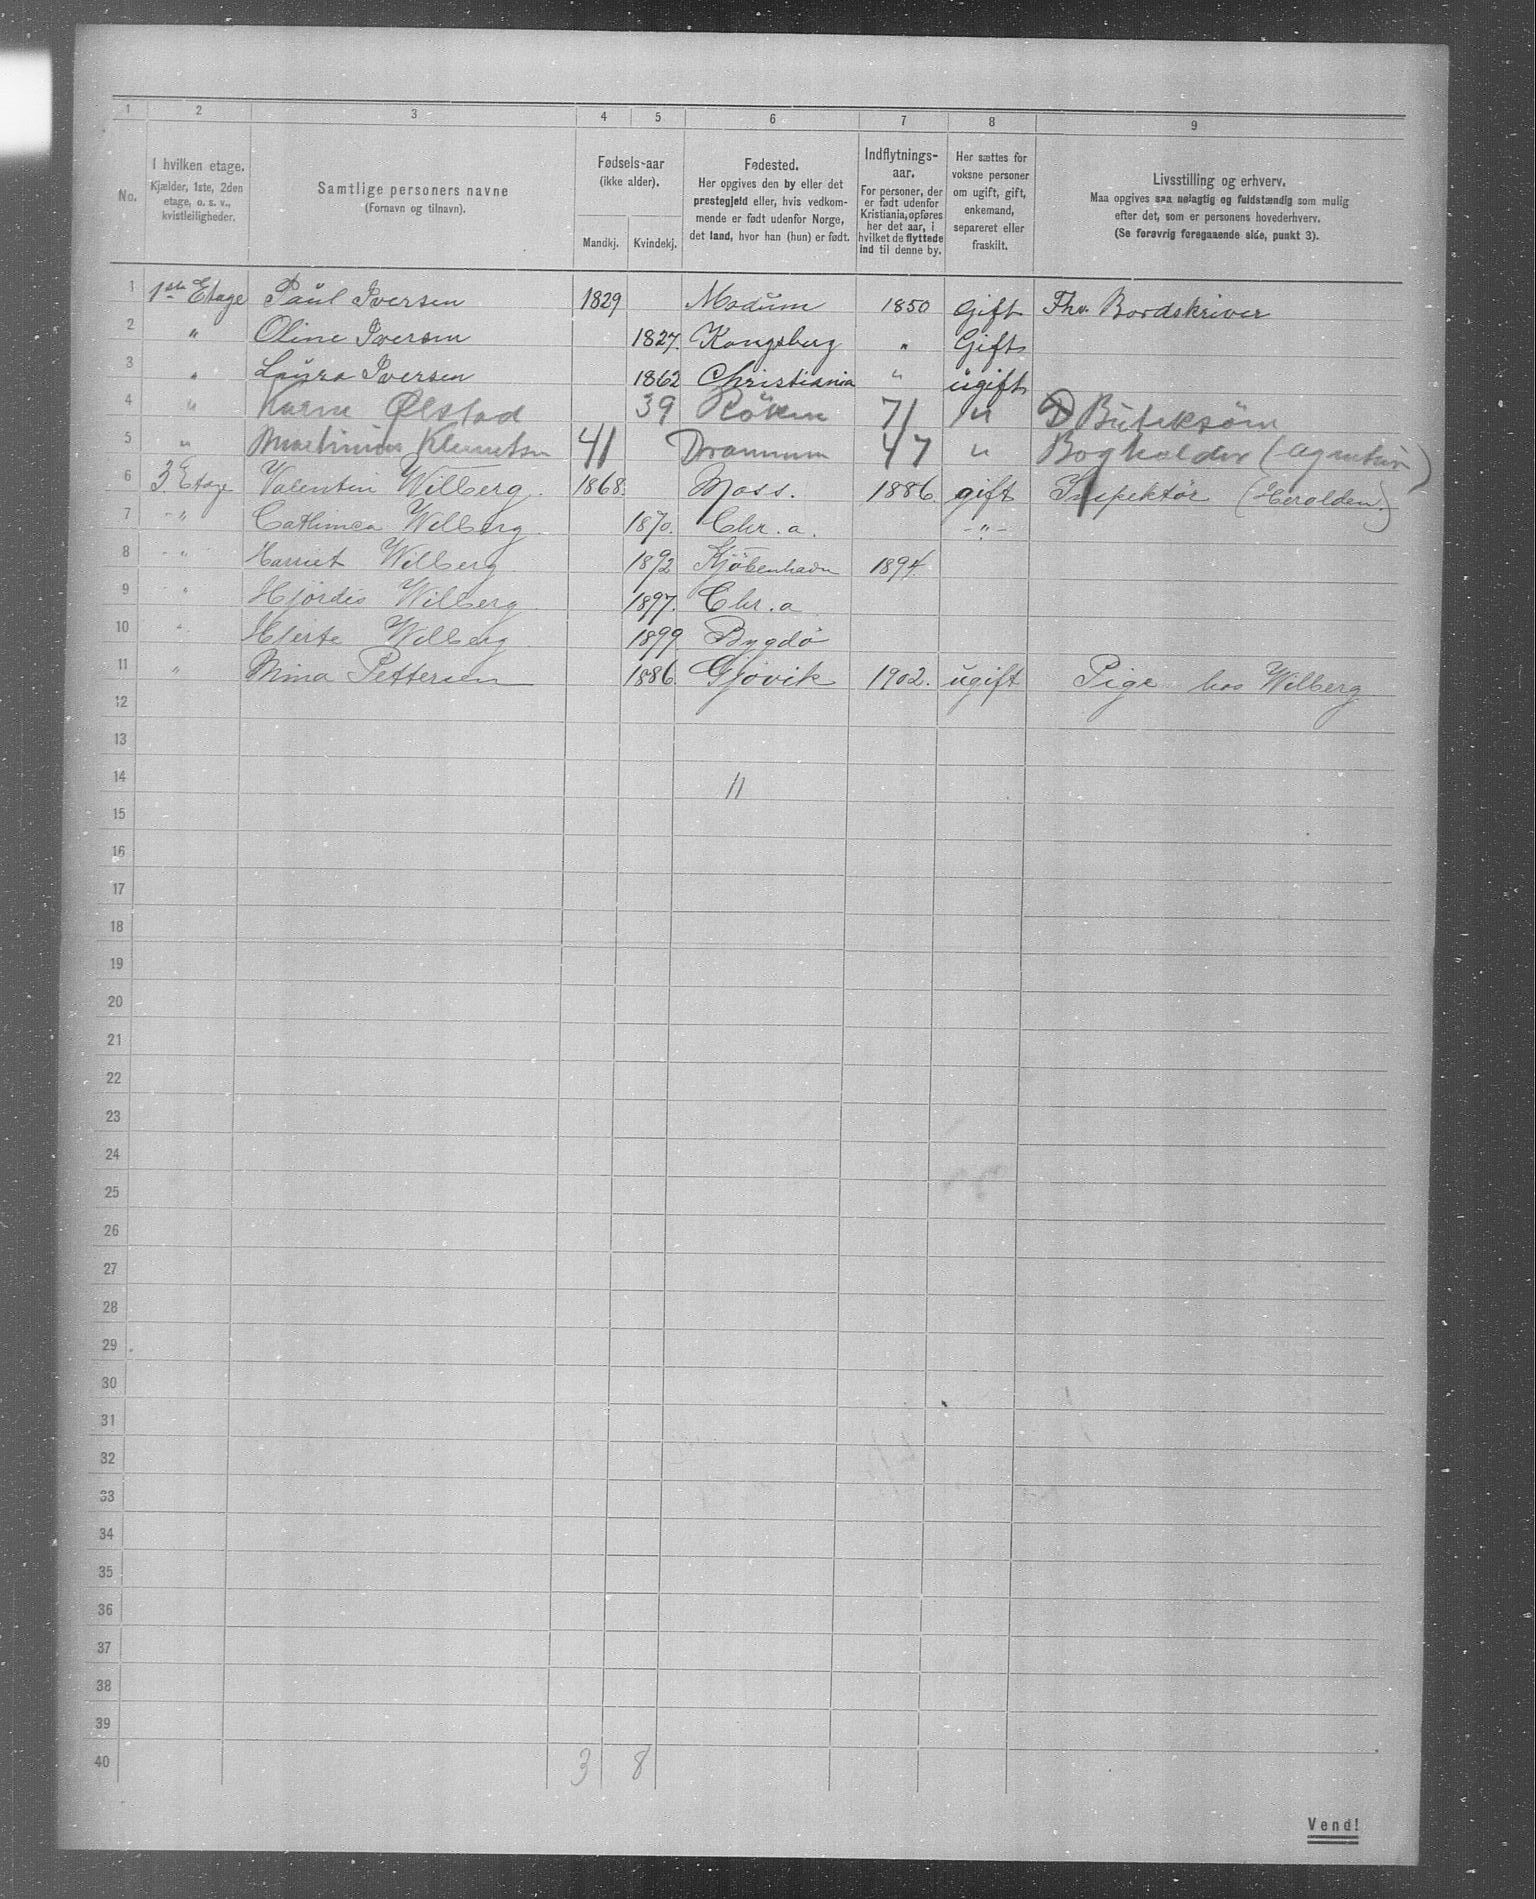 1 2 3 4 5 6 7 8 9
No. I hvilken etage. Kjælder, 1ste, 2den etage, o. s. v., kvistleiligheder. Samtlige personers navne (Fornavn og tilnavn). Fødsels-aar (ikke alder). Mandkj. Kvindekj. Fødested. Her opgives den by eller det prestegjeld eller, hvis vedkommende er født udenfor Norge, det land, hvor han (hun) er født. Indflytnings-aar. For personer, der er født udenfor Kristiania, opføres her det aar, i hvilket de flyttede ind til denne by. Her sættes for voksne personer om ugift, gift, enkemand, separeret eller fraskilt. Livsstilling og erhverv. Maa opgives saa nøiagtig og fuldstændig som mulig efter det, som er personens hovederhverv. (Se forøvrig foregaaende side, punkt 3).
1 1ste Etage Paul Iversen 1829 Modum 1850 Gift Fhv. Bordskriver
2 " Oline Iversen 1827. Kongsberg " Gift
3 " Laura Iversen 1862 Christiania " ugift
4 " Karen Ølstad 39 Röken 71 "
5 " Klemetsen 41 Drammen 47 " Bogholder (Agentur)
6 3. Etage Valentin Wilberg. 1868. Moss. 1886. gift Inspektør (Heralden.)
7 -"- Wilberg 1870. Chr.a. -"-
8 -"- Harriet Wilberg 1892 Kjöbenhavn 1894.
9 " Hjördis Wilberg 1897. Chr.a
10 " Wilberg 1899. Bygdö
11 " Mina Pettersen 1886. Gjövik 1902. ugift Pige hos Wilberg
12
13
14 11
15
16
17
18
19
20
21
22
23
24
25
26
27
28
29
30
31
32
33
34
35
36
37
38
39
40 3 8
Vend!